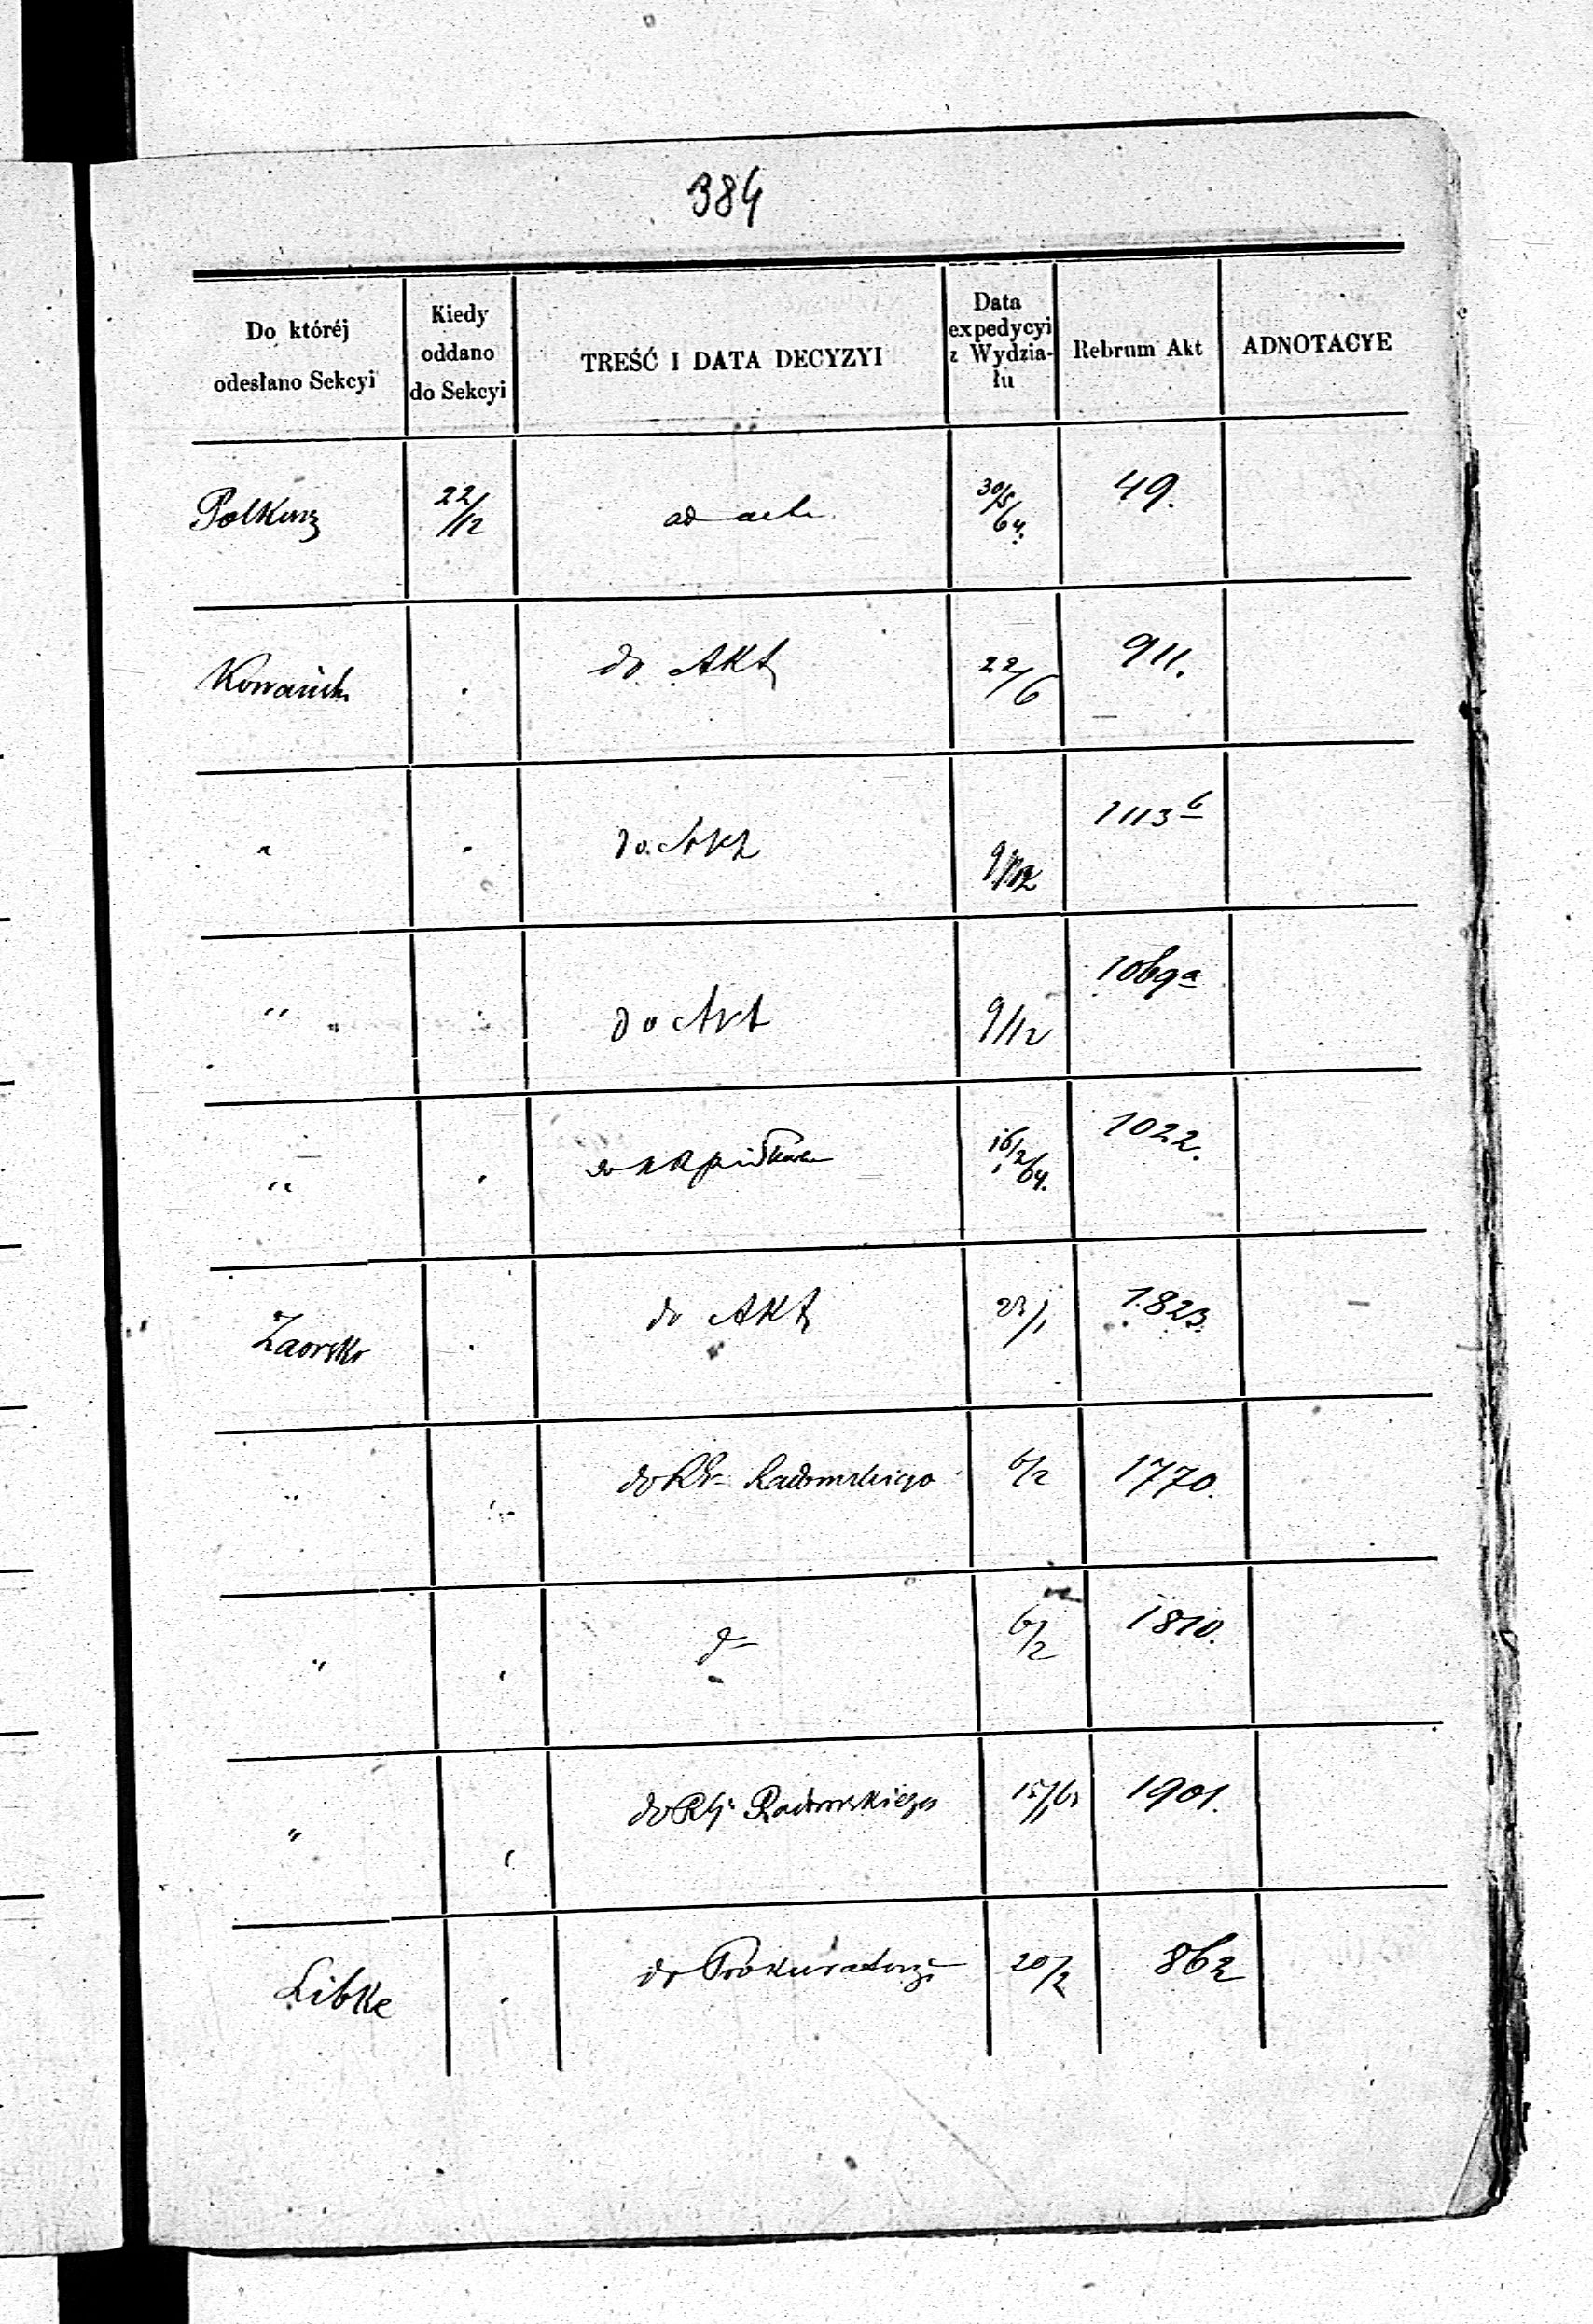 384
Do któréj odesłano Sekcyi | Kiedy oddano do Sekcyi | TREŚĆ I DATA DECYZYI | Data expedycyi z Wydzia-łu | Rebrum Akt | ADNOTACYE
22/12 | ad acta | 30/5 64. | 49.
. | do Akt | 22/6 | 911.
" | " | do Akt | 9/12 | 1113 b
" " | " | do Akt | 9/12 | 1069 a
" | " | 16/2 64. | 1022.
Zaorski | . | do Akt | 23/1 | 1823.
" | " | do RG Radomskiego | 6/2 | 1770.
" | " | d | 6/2 | 1810.
" | " | do RG Radomskiego | 1901.
Libke | . | do Prokuratoryi | 20/2 | 862